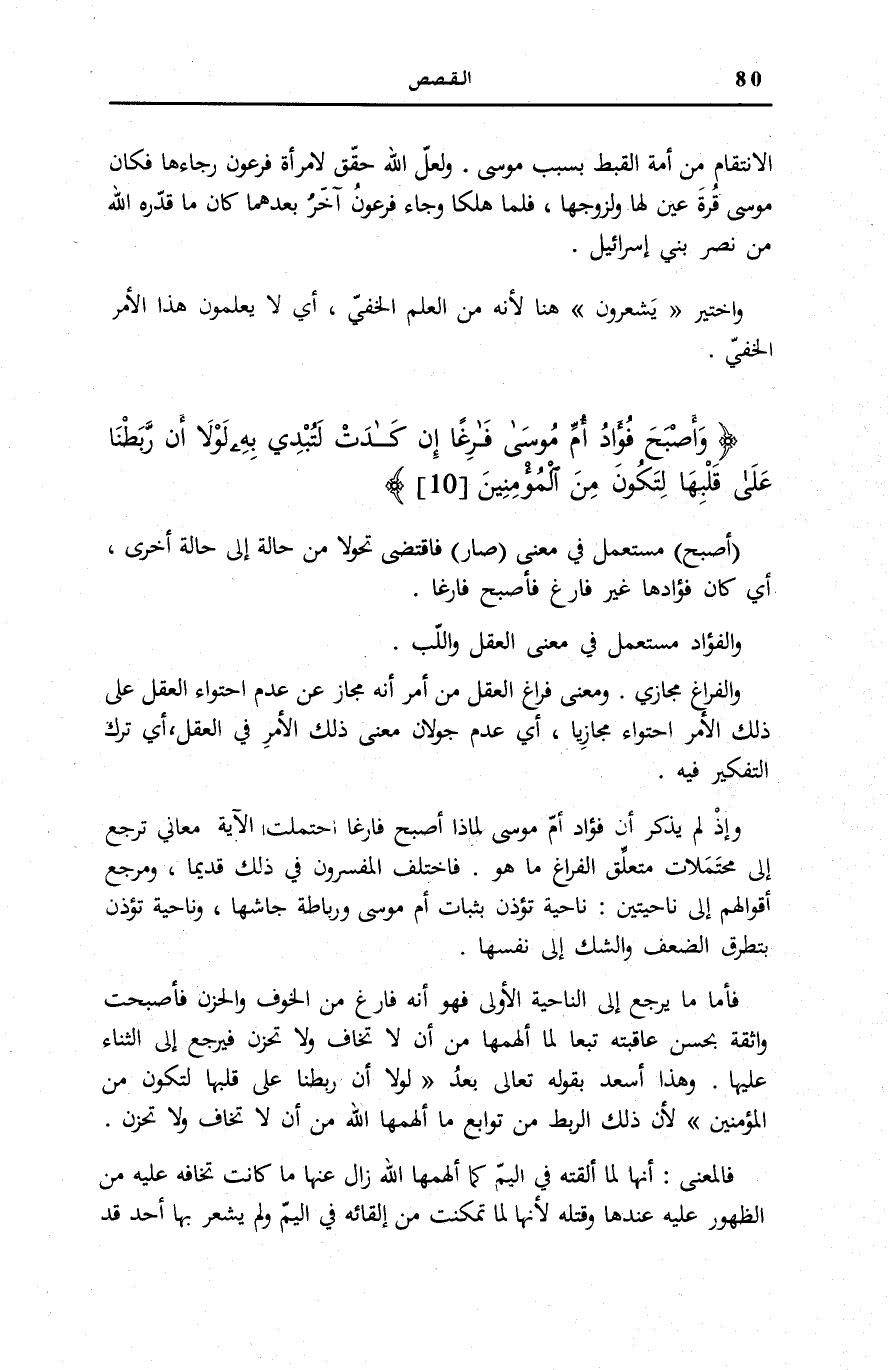 80
القصص
الانتقام من أمة القبط بسبب موسى . ولعلّ الله حقّق لامرأة فرعون رجاءها فكان
موسى قُرةَ عين لها ولزوجها ، فلما هلكا وجاء فرعونُ آخَرُ بعدهما كان ما قدّره الله
من نصر بني إسرائيل .
واختير « يَشعرون » هنا لأنه من العلم الخفيّ ، أي لا يعلمون هذا الأمر
الخفيّ .
﴿ وَأَصْبَحَ فُؤَادُ أُمِّ مُوسَىٰ فَـٰرِغًا إِن كَـٰدَتْ لَتُبْدِي بِهِۦ لَوْلَا أَن رَّبَطْنَا
عَلَىٰ قَلْبِهَا لِتَكُونَ مِنَ ٱلْمُؤْمِنِينَ [10] ﴾
(أصبح) مستعمل في معنى (صار) فاقتضى تحولا من حالة إلى حالة أخرى ،
أي كان فؤادها غير فارغ فأصبح فارغا .
والفؤاد مستعمل في معنى العقل واللّب .
والفراغ مجازي . ومعنى فراغ العقل من أمر أنه مجاز عن عدم احتواء العقل على
ذلك الأمر احتواء مجازيا ، أي عدم جولان معنى ذلك الأمرِ في العقل،أي ترك
التفكير فيه .
وإذْ لم يذكر أن فؤاد أمّ موسى لماذا أصبح فارغا احتملت الآية معاني ترجع
إلى محتَمَلات متعلِّق الفراغ ما هو . فاختلف المفسرون في ذلك قديما ، ومرجع
أقوالهم إلى ناحيتين : ناحية تؤذن بثبات أم موسى ورباطة جاشها ، وناحية تؤذن
بتطرق الضعف والشك إلى نفسها .
فأما ما يرجع إلى الناحية الأولى فهو أنه فارغ من الخوف والحزن فأصبحت
واثقة بحسن عاقبته تبعا لما ألهمها من أن لا تخاف ولا تحزن فيرجع إلى الثناء
عليها . وهذا أسعد بقوله تعالى بعدُ « لولا أن ربطنا على قلبها لتكون من
المؤمنين » لأن ذلك الربط من توابع ما ألهمها الله من أن لا تخاف ولا تحزن .
فالمعنى : أنها لما ألقته في اليمّ كما ألهمها الله زال عنها ما كانت تخافه عليه من
الظهور عليه عندها وقتله لأنها لما تمكنت من إلقائه في اليمّ ولم يشعر بها أحد قد